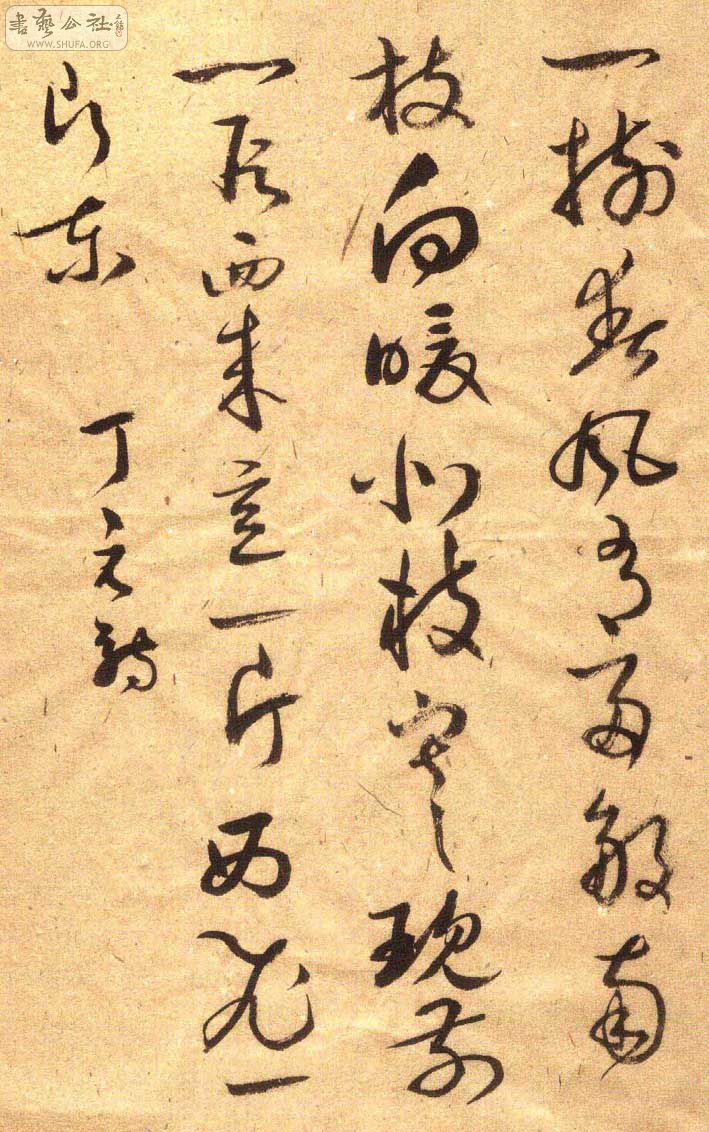 書藝公社
WWW.SHUFA.ORG
一樹春風有兩般南
枝向暖北枝寒現前
一段西來意一片西飛一
片東
丁元